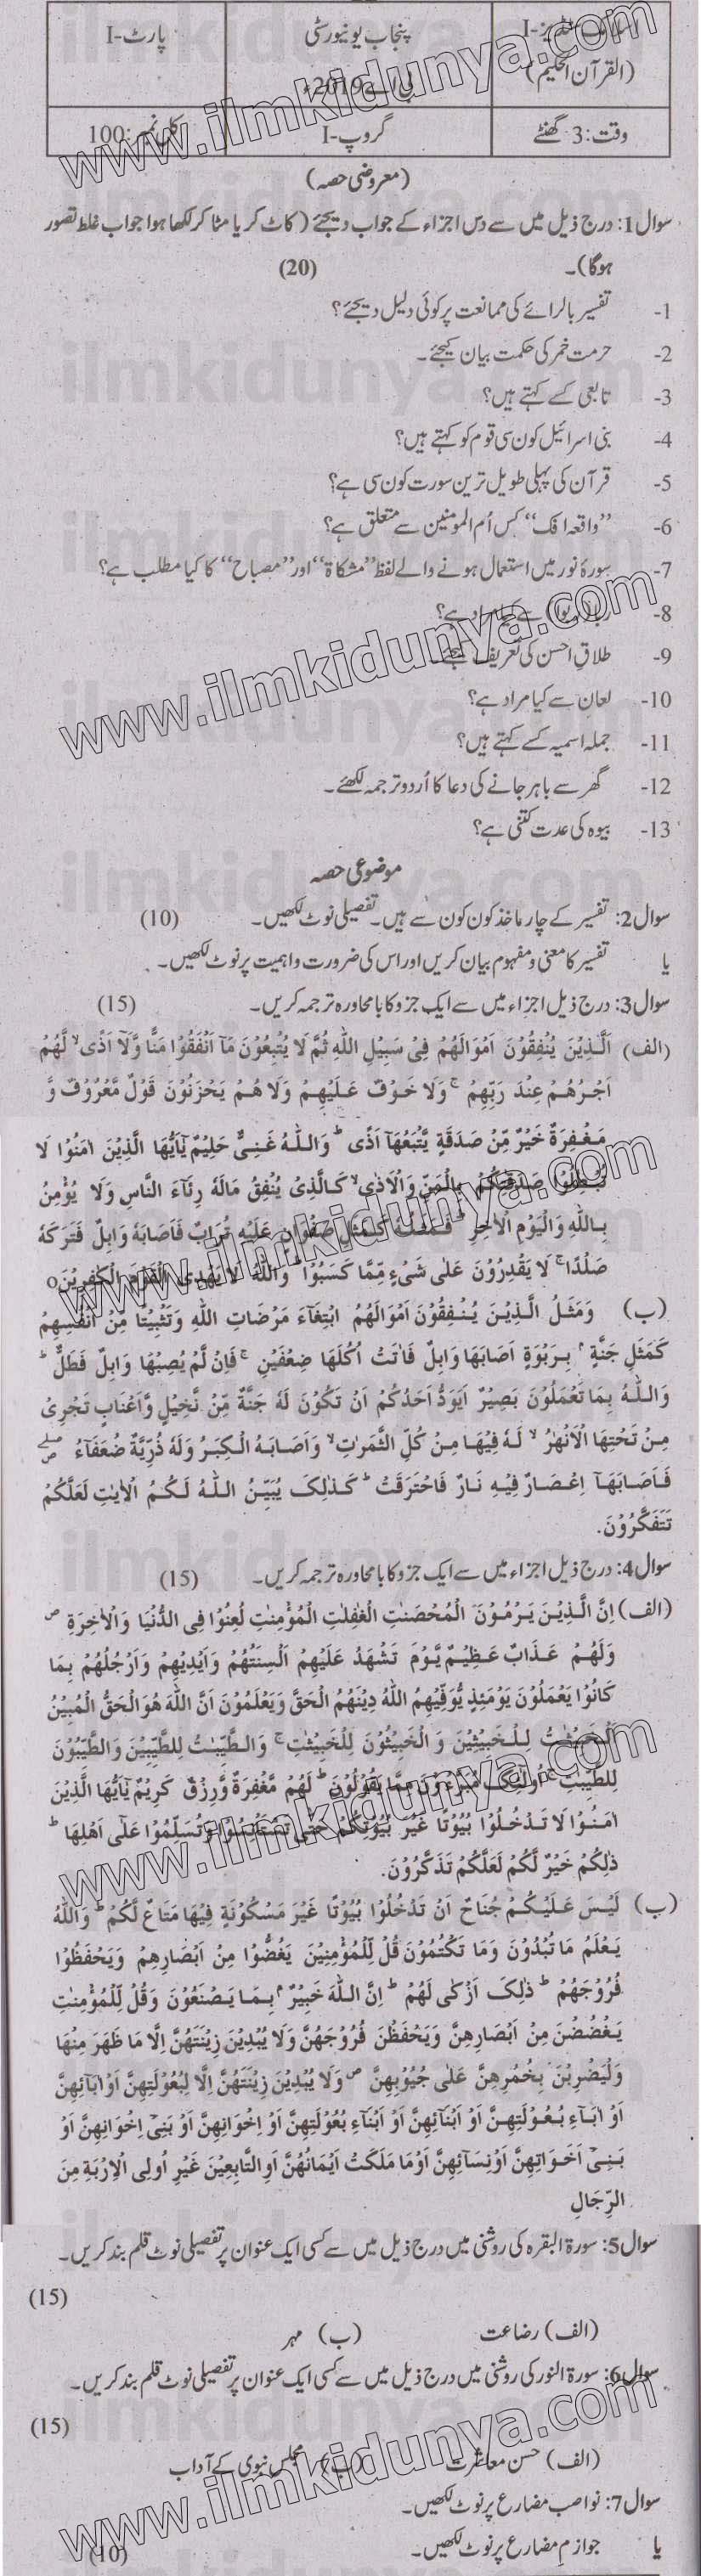 پارٹ-I
پنجاب یونیورسٹی
بی اے 2019ء
(القرآن الحکیم)
کل نمبر: 100
گروپ-I
وقت: 3 گھنٹے
(معروضی حصہ)
سوال 1: درج ذیل میں سے دس اجزاء کے جواب دیجئے (کاٹ کر یا مٹا کر لکھا ہوا جواب غلط تصور
ہوگا)۔ (20)
1- تفسیر بالرائے کی ممانعت پر کوئی دلیل دیجئے؟
2- حرمت خمر کی حکمت بیان کیجئے۔
3- تابعی کسے کہتے ہیں؟
4- بنی اسرائیل کون سی قوم کو کہتے ہیں؟
5- قرآن کی پہلی طویل ترین سورت کون سی ہے؟
6- ’’واقعہ افک‘‘ کس اُم المومنین سے متعلق ہے؟
7- سورۂ نور میں استعمال ہونے والے لفظ ’’مشکاۃ‘‘ اور ’’مصباح‘‘ کا کیا مطلب ہے؟
8- سے کیا مراد ہے؟
9- طلاق احسن کی تعریف کیجئے۔
10- لعان سے کیا مراد ہے؟
11- جملہ اسمیہ کسے کہتے ہیں؟
12- گھر سے باہر جانے کی دعا کا اُردو ترجمہ لکھئے۔
13- بیوہ کی عدت کتنی ہے؟
موضوعی حصہ
سوال 2: تفسیر کے چار ماخذ کون کون سے ہیں۔ تفصیلی نوٹ لکھیں۔ (10)
یا تفسیر کا معنی و مفہوم بیان کریں اور اس کی ضرورت و اہمیت پر نوٹ لکھیں۔
سوال 3: درج ذیل اجزاء میں سے ایک جزو کا بامحاورہ ترجمہ کریں۔ (15)
(الف) اَلَّذِیْنَ یُنْفِقُوْنَ اَمْوَالَهُمْ فِیْ سَبِیْلِ اللّٰهِ ثُمَّ لَا یُتْبِعُوْنَ مَآ اَنْفَقُوْا مَنًّا وَّلَآ اَذًی ۙ لَّهُمْ
اَجْرُهُمْ عِنْدَ رَبِّهِمْ ۚ وَلَا خَوْفٌ عَلَیْهِمْ وَلَا هُمْ یَحْزَنُوْنَ قَوْلٌ مَّعْرُوْفٌ وَّ
مَغْفِرَةٌ خَیْرٌ مِّنْ صَدَقَةٍ یَّتْبَعُهَآ اَذًی ؕ وَاللّٰهُ غَنِیٌّ حَلِیْمٌ یٰٓاَیُّهَا الَّذِیْنَ اٰمَنُوْا لَا
تُبْطِلُوْا صَدَقٰتِکُمْ بِالْمَنِّ وَالْاَذٰی ۙ کَالَّذِیْ یُنْفِقُ مَالَهٗ رِئَآءَ النَّاسِ وَلَا یُؤْمِنُ
بِاللّٰهِ وَالْیَوْمِ الْاٰخِرِ ؕ فَمَثَلُهٗ کَمَثَلِ صَفْوَانٍ عَلَیْهِ تُرَابٌ فَاَصَابَهٗ وَابِلٌ فَتَرَکَهٗ
صَلْدًا ؕ لَا یَقْدِرُوْنَ عَلٰی شَیْءٍ مِّمَّا کَسَبُوْا ؕ وَاللّٰهُ لَا یَهْدِی الْقَوْمَ الْکٰفِرِیْنَo
(ب) وَمَثَلُ الَّذِیْنَ یُنْفِقُوْنَ اَمْوَالَهُمُ ابْتِغَآءَ مَرْضَاتِ اللّٰهِ وَتَثْبِیْتًا مِّنْ اَنْفُسِهِمْ
کَمَثَلِ جَنَّةٍۢ بِرَبْوَةٍ اَصَابَهَا وَابِلٌ فَاٰتَتْ اُکُلَهَا ضِعْفَیْنِ ۚ فَاِنْ لَّمْ یُصِبْهَا وَابِلٌ فَطَلٌّ ؕ
وَاللّٰهُ بِمَا تَعْمَلُوْنَ بَصِیْرٌ اَیَوَدُّ اَحَدُکُمْ اَنْ تَکُوْنَ لَهٗ جَنَّةٌ مِّنْ نَّخِیْلٍ وَّاَعْنَابٍ تَجْرِیْ
مِنْ تَحْتِهَا الْاَنْهٰرُ ۙ لَهٗ فِیْهَا مِنْ کُلِّ الثَّمَرٰتِ ۙ وَاَصَابَهُ الْکِبَرُ وَلَهٗ ذُرِّیَّةٌ ضُعَفَآءُ
فَاَصَابَهَآ اِعْصَارٌ فِیْهِ نَارٌ فَاحْتَرَقَتْ ؕ کَذٰلِکَ یُبَیِّنُ اللّٰهُ لَکُمُ الْاٰیٰتِ لَعَلَّکُمْ
تَتَفَکَّرُوْنَ.
سوال 4: درج ذیل اجزاء میں سے ایک جزو کا بامحاورہ ترجمہ کریں۔ (15)
(الف) اِنَّ الَّذِیْنَ یَرْمُوْنَ الْمُحْصَنٰتِ الْغٰفِلٰتِ الْمُؤْمِنٰتِ لُعِنُوْا فِی الدُّنْیَا وَالْاٰخِرَةِ ص
وَلَهُمْ عَذَابٌ عَظِیْمٌ یَّوْمَ تَشْهَدُ عَلَیْهِمْ اَلْسِنَتُهُمْ وَاَیْدِیْهِمْ وَاَرْجُلُهُمْ بِمَا
کَانُوْا یَعْمَلُوْنَ یَوْمَئِذٍ یُّوَفِّیْهِمُ اللّٰهُ دِیْنَهُمُ الْحَقَّ وَیَعْلَمُوْنَ اَنَّ اللّٰهَ هُوَ الْحَقُّ الْمُبِیْنُ
اَلْخَبِیْثٰتُ لِلْخَبِیْثِیْنَ وَ الْخَبِیْثُوْنَ لِلْخَبِیْثٰتِ ۚ وَالطَّیِّبٰتُ لِلطَّیِّبِیْنَ وَالطَّیِّبُوْنَ
لِلطَّیِّبٰتِ ۚ اُولٰٓئِکَ مُبَرَّءُوْنَ مِمَّا یَقُوْلُوْنَ ؕ لَهُمْ مَّغْفِرَةٌ وَّرِزْقٌ کَرِیْمٌ یٰٓاَیُّهَا الَّذِیْنَ
اٰمَنُوْا لَا تَدْخُلُوْا بُیُوْتًا غَیْرَ بُیُوْتِکُمْ حَتّٰی تَسْتَاْنِسُوْا وَتُسَلِّمُوْا عَلٰٓی اَهْلِهَا ؕ
ذٰلِکُمْ خَیْرٌ لَّکُمْ لَعَلَّکُمْ تَذَکَّرُوْنَ.
(ب) لَیْسَ عَلَیْکُمْ جُنَاحٌ اَنْ تَدْخُلُوْا بُیُوْتًا غَیْرَ مَسْکُوْنَةٍ فِیْهَا مَتَاعٌ لَّکُمْ ؕ وَاللّٰهُ
یَعْلَمُ مَا تُبْدُوْنَ وَمَا تَکْتُمُوْنَ قُلْ لِّلْمُؤْمِنِیْنَ یَغُضُّوْا مِنْ اَبْصَارِهِمْ وَیَحْفَظُوْا
فُرُوْجَهُمْ ؕ ذٰلِکَ اَزْکٰی لَهُمْ ؕ اِنَّ اللّٰهَ خَبِیْرٌۢ بِمَا یَصْنَعُوْنَ وَقُلْ لِّلْمُؤْمِنٰتِ
یَغْضُضْنَ مِنْ اَبْصَارِهِنَّ وَیَحْفَظْنَ فُرُوْجَهُنَّ وَلَا یُبْدِیْنَ زِیْنَتَهُنَّ اِلَّا مَا ظَهَرَ مِنْهَا
وَلْیَضْرِبْنَ بِخُمُرِهِنَّ عَلٰی جُیُوْبِهِنَّ ص وَلَا یُبْدِیْنَ زِیْنَتَهُنَّ اِلَّا لِبُعُوْلَتِهِنَّ اَوْ اٰبَآئِهِنَّ
اَوْ اٰبَآءِ بُعُوْلَتِهِنَّ اَوْ اَبْنَآئِهِنَّ اَوْ اَبْنَآءِ بُعُوْلَتِهِنَّ اَوْ اِخْوَانِهِنَّ اَوْ بَنِیْٓ اِخْوَانِهِنَّ اَوْ
بَنِیْٓ اَخَوَاتِهِنَّ اَوْ نِسَآئِهِنَّ اَوْ مَا مَلَکَتْ اَیْمَانُهُنَّ اَوِ التَّابِعِیْنَ غَیْرِ اُولِی الْاِرْبَةِ مِنَ
الرِّجَالِ
سوال 5: سورۃ البقرہ کی روشنی میں درج ذیل میں سے کسی ایک عنوان پر تفصیلی نوٹ قلم بند کریں۔
(15)
(الف) رضاعت (ب) مہر
سوال 6: سورۃ النور کی روشنی میں درج ذیل میں سے کسی ایک عنوان پر تفصیلی نوٹ قلم بند کریں۔
(15)
(الف) حسن معاشرت (ب) مجلس نبوی کے آداب
سوال 7: نواصب مضارع پر نوٹ لکھیں۔
یا جوازم مضارع پر نوٹ لکھیں۔ (10)
www.ilmkidunya.com